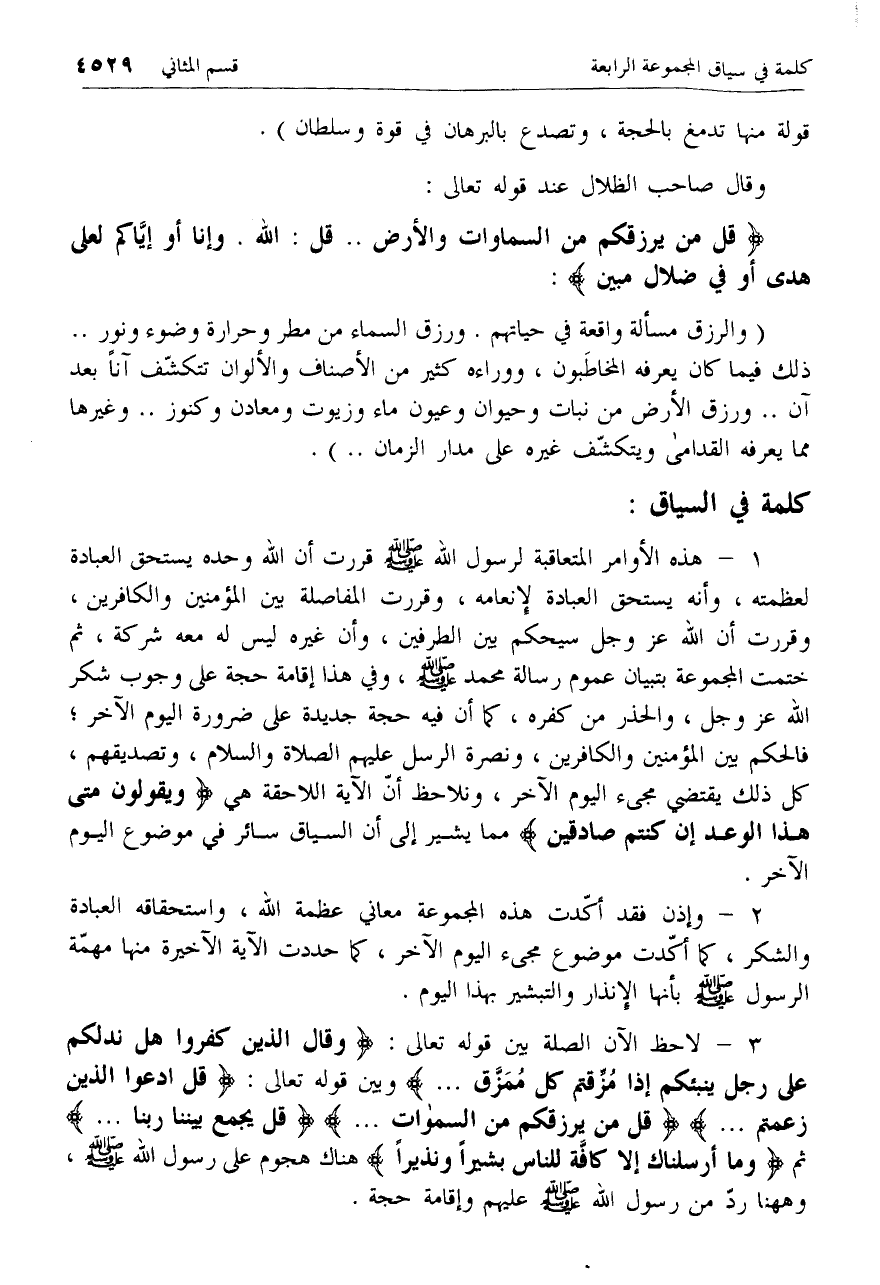 كلمة في سياق المجموعة الرابعة قسم المثاني ٤٥٢٩
قولة منها تدمغ بالحجة ، وتصدع بالبرهان في قوة وسلطان ) .
وقال صاحب الظلال عند قوله تعالى :
﴿ قل من يرزقكم من السماوات والأرض .. قل : الله . وإنا أو إيَّاكم لعلى
هدى أو في ضلال مبين ﴾ :
( والرزق مسألة واقعة في حياتهم . ورزق السماء من مطر وحرارة وضوء ونور ..
ذلك فيما كان يعرفه المخاطَبون ، ووراءه كثير من الأصناف والألوان تتكشّف آناً بعد
آن .. ورزق الأرض من نبات وحيوان وعيون ماء وزيوت ومعادن وكنوز .. وغيرها
مما يعرفه القدامىٰ ويتكشّف غيره على مدار الزمان .. ) .
كلمة في السياق :
١ – هذه الأوامر المتعاقبة لرسول الله ﷺ قررت أن الله وحده يستحق العبادة
لعظمته ، وأنه يستحق العبادة لإنعامه ، وقررت المفاصلة بين المؤمنين والكافرين ،
وقررت أن الله عز وجل سيحكم بين الطرفين ، وأن غيره ليس له معه شركة ، ثم
ختمت المجموعة بتبيان عموم رسالة محمد ﷺ ، وفي هذا إقامة حجة على وجوب شكر
الله عز وجل ، والحذر من كفره ، كما أن فيه حجة جديدة على ضرورة اليوم الآخر ؛
فالحكم بين المؤمنين والكافرين ، ونصرة الرسل عليهم الصلاة والسلام ، وتصديقهم ،
كل ذلك يقتضي مجىء اليوم الآخر ، ونلاحظ أنّ الآية اللاحقة هي ﴿ ويقولون متى
هـذا الوعـد إن كنتم صادقين ﴾ مما يشـير إلى أن السـياق سـائر في موضوع اليـوم
الآخر .
٢ – وإذن فقد أكّدت هذه المجموعة معاني عظمة الله ، واستحقاقه العبادة
والشكر ، كما أكّدت موضوع مجىء اليوم الآخر ، كما حددت الآية الأخيرة منها مهمّة
الرسول ﷺ بأنها الإنذار والتبشير بهذا اليوم .
٣ – لاحظ الآن الصلة بين قوله تعالى : ﴿ وقال الذين كفروا هل ندلكم
على رجل ينبئكم إذا مُزِّقتم كل مُمَزَّق ... ﴾ وبين قوله تعالى : ﴿ قل ادعوا الذين
زعمتم ... ﴾ ﴿ قل من يرزقكم من السمٰوات ... ﴾ ﴿ قل يجمع بيننا ربنا ... ﴾
ثم ﴿ وما أرسلناك إلا كافَّة للناس بشيراً ونذيراً ﴾ هناك هجوم على رسول الله ﷺ ،
وههنا ردّ من رسول الله ﷺ عليهم وإقامة حجة .